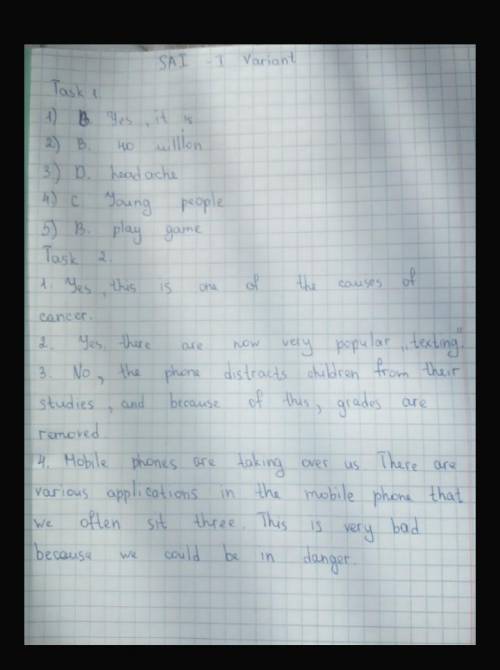 SAI - I Variant
Task 1
1) B Yes, it is
2) B. 40 million
3) D. headache
4) C. Young people
5) B. play game
Task 2.
1. Yes, this is one of the causes of
cancer.
2. Yes, there are now very popular „texting".
3. No, the phone distracts children from their
studies, and because of this, grades are
removed.
4. Mobile phones are taking over us. There are
various applications in the mobile phone that
we often sit three. This is very bad
because we could be in danger.